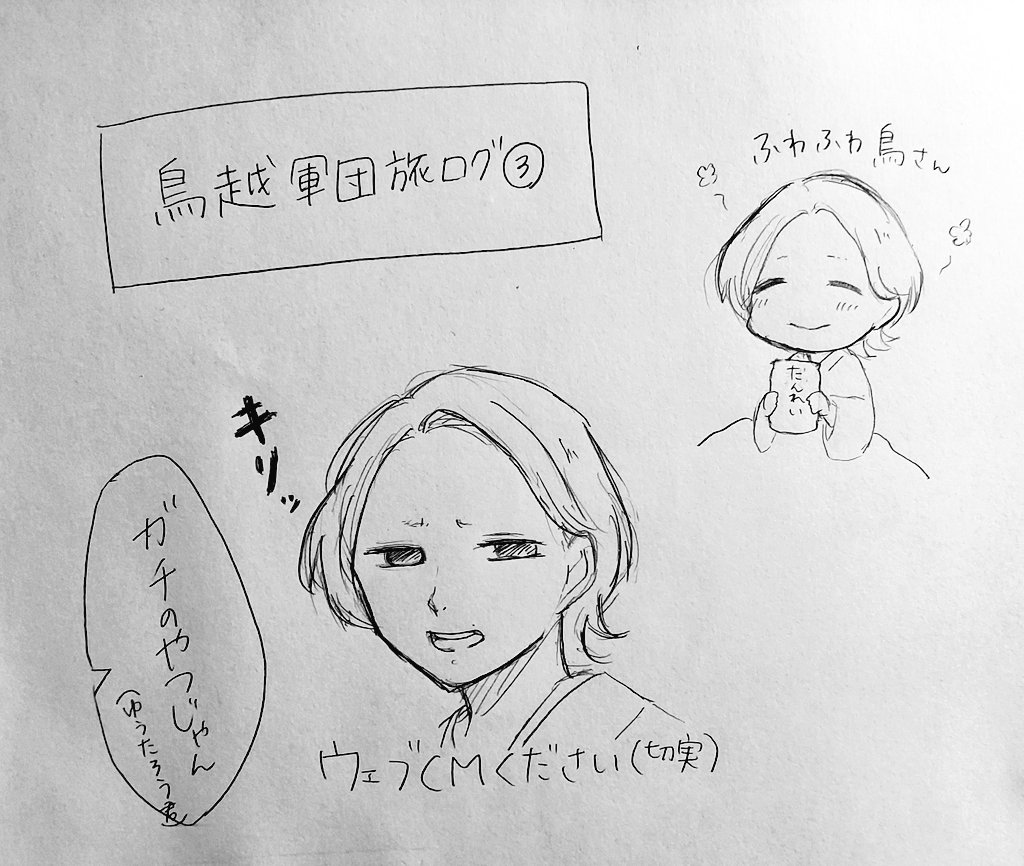 鳥越軍団旅ログ③
ふわふわ鳥さん
たんれい
キリッ
ガチのやつじゃん
(ゆうたろう君)
ウェブCMください(切実)